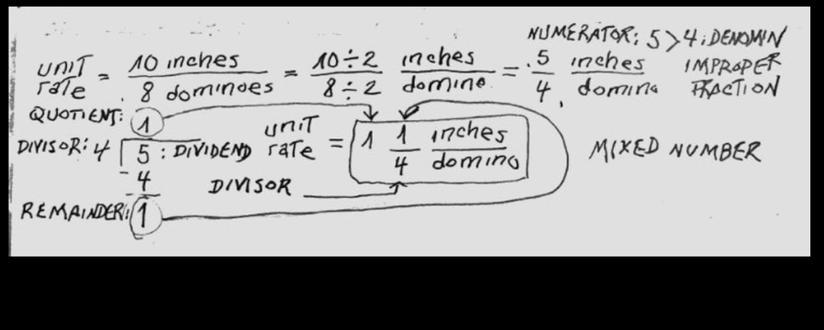 NUMERATOR: 5 > 4 : DENOMIN
unit rate = 10 inches / 8 dominoes = 10 ÷ 2 / 8 ÷ 2 inches / domino = 5 / 4 inches / domino IMPROPER FRACTION
QUOTIENT: 1
DIVISOR: 4 5 : DIVIDEND unit rate = 1 1 / 4 inches / domino MIXED NUMBER
- 4 DIVISOR
REMAINDER: 1